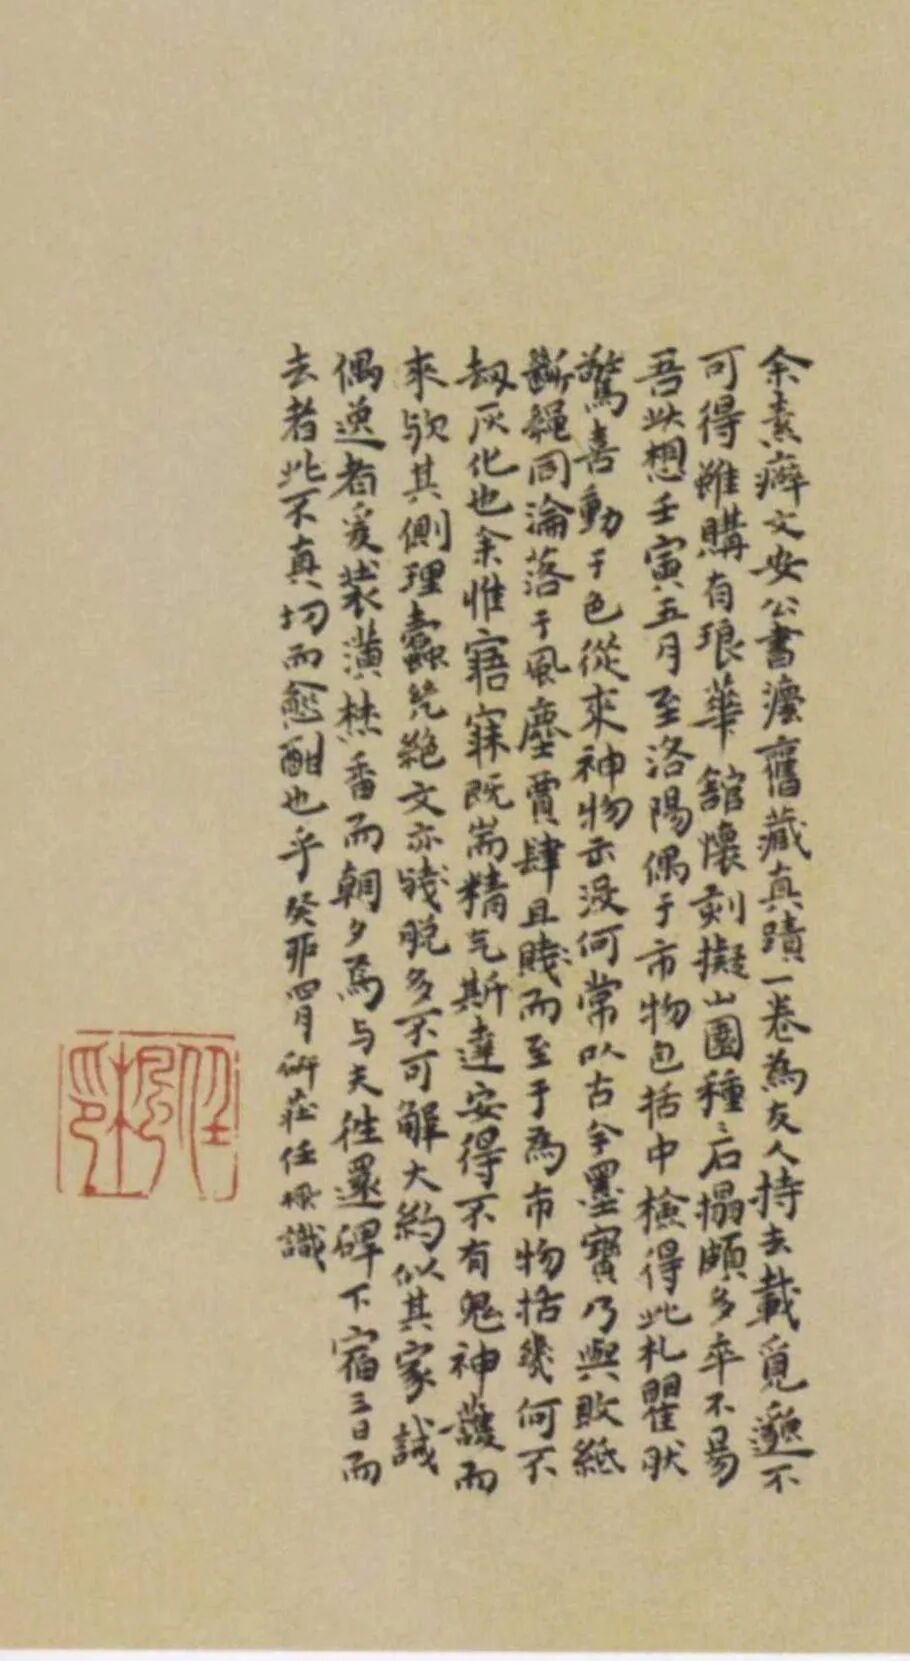 余素癖文安公書瀘舊藏真蹟一卷為友人持去載覓邈不
可得雖購有琅華舘懷刻擬山園種々石搨頗多卒不易
吾此想壬寅五月至洛陽偶于市物包括中檢得此札瞿然
驚喜動于色從來神物示没何常以古今墨寶乃與敗紙
斷繩同淪落于風塵賈肆且賤而至于為市物括幾何不
劫灰化也余惟寤寐既耑精气斯達安得不有鬼神護而
來欤其側理蠹筅絶文亦殘脫多不可解大約似其家誡
偶逸者爰裝潢焚香而朝夕焉与夫徃還碑下宿三日而
去者此不真切而愈酣也乎癸卯四月研莊任楓識